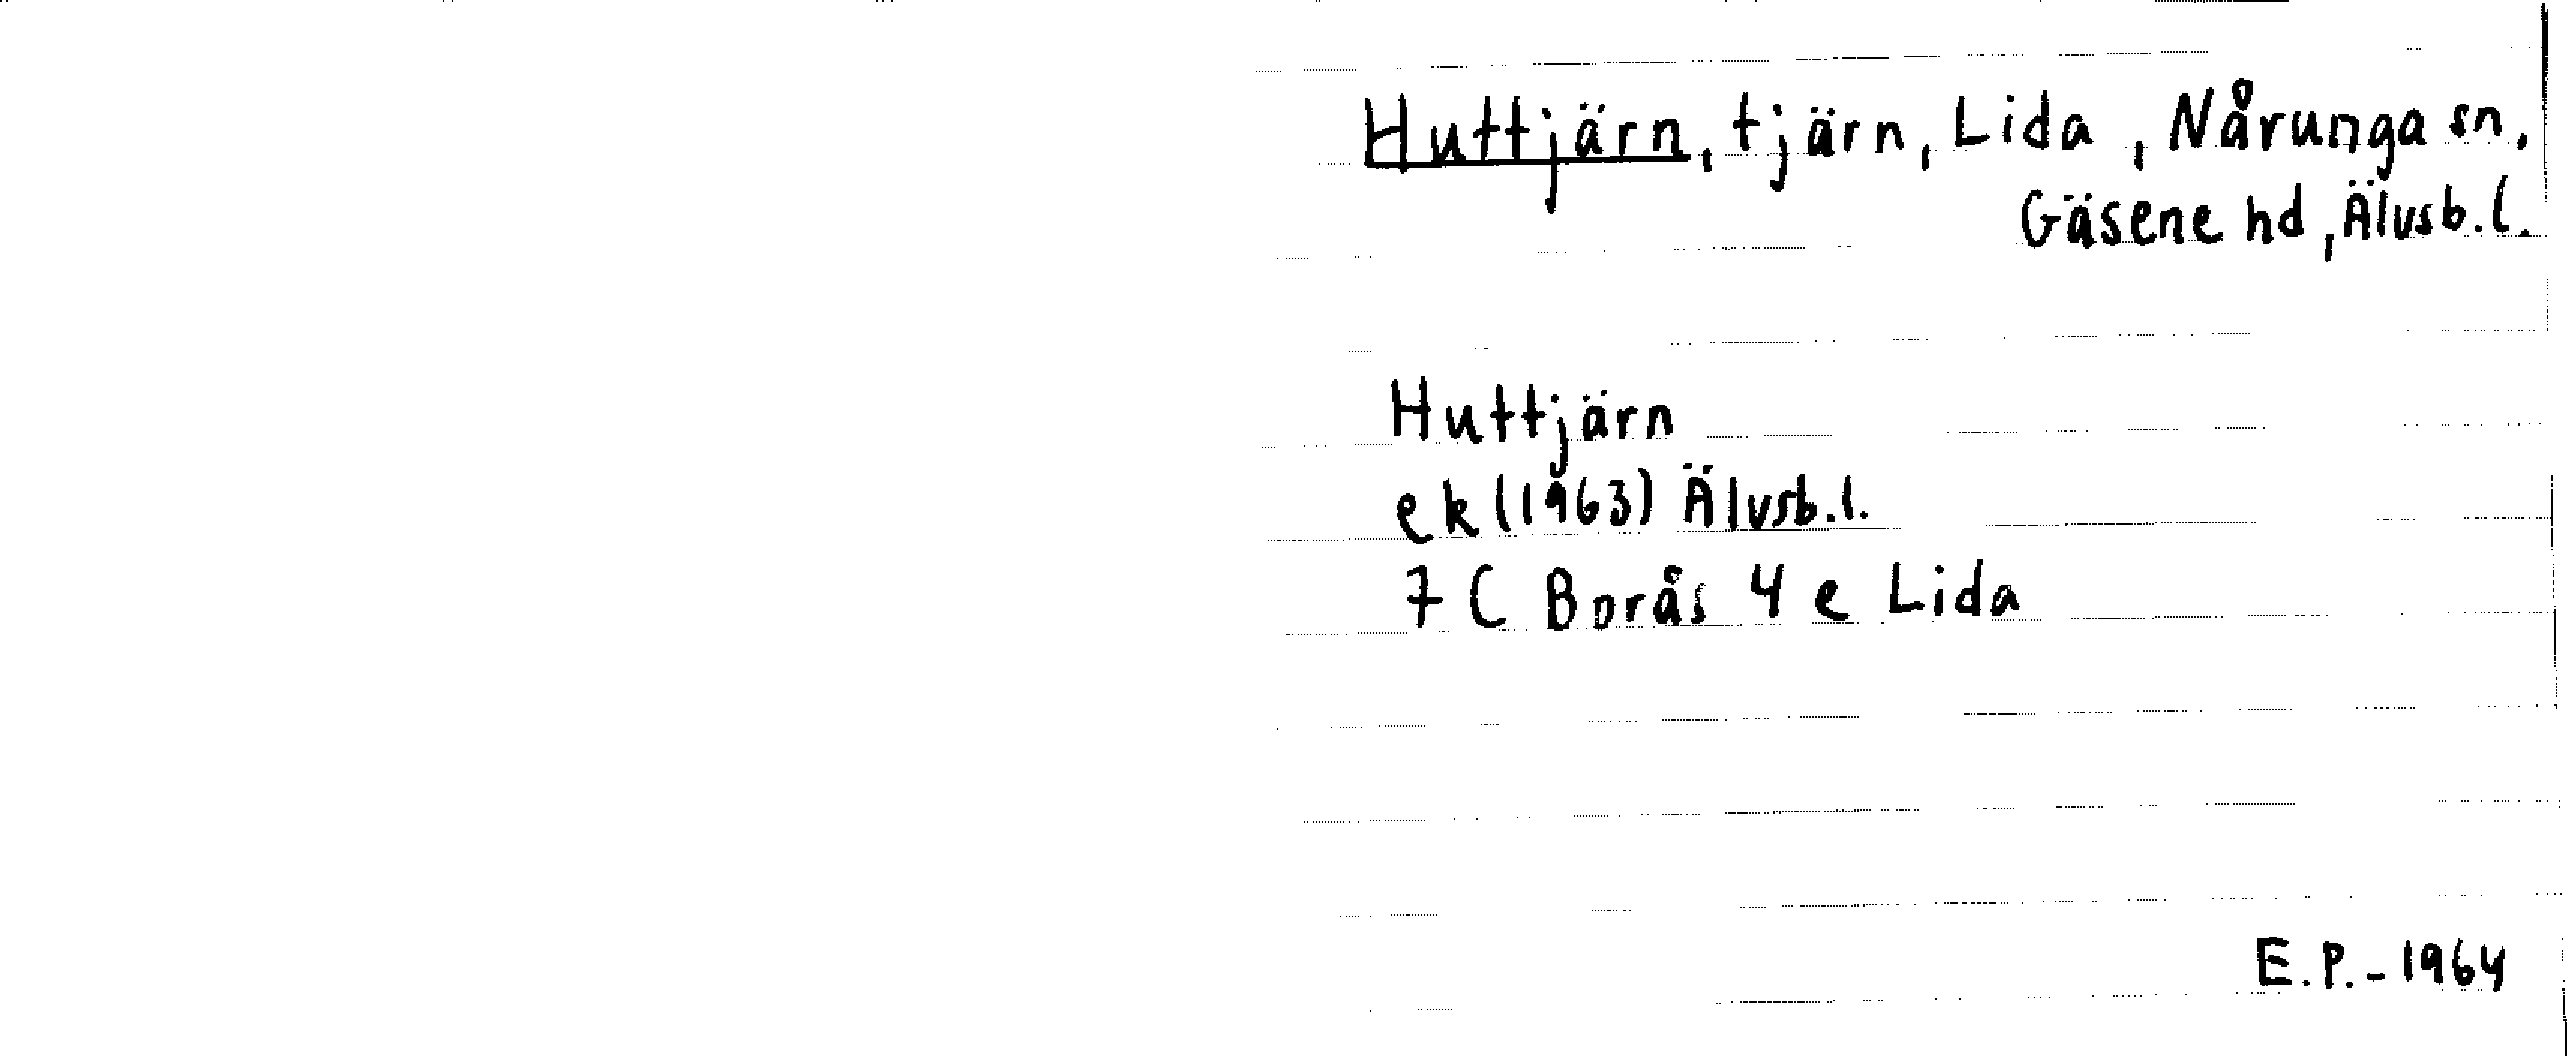 Huttjärn, tjärn, Lida, Nårunga sn,
Gäsene hd, Älvsb.l.
Huttjärn
ek (1963) Älvsb.l.
7 C Borås 4 e Lida
E.P.-1964